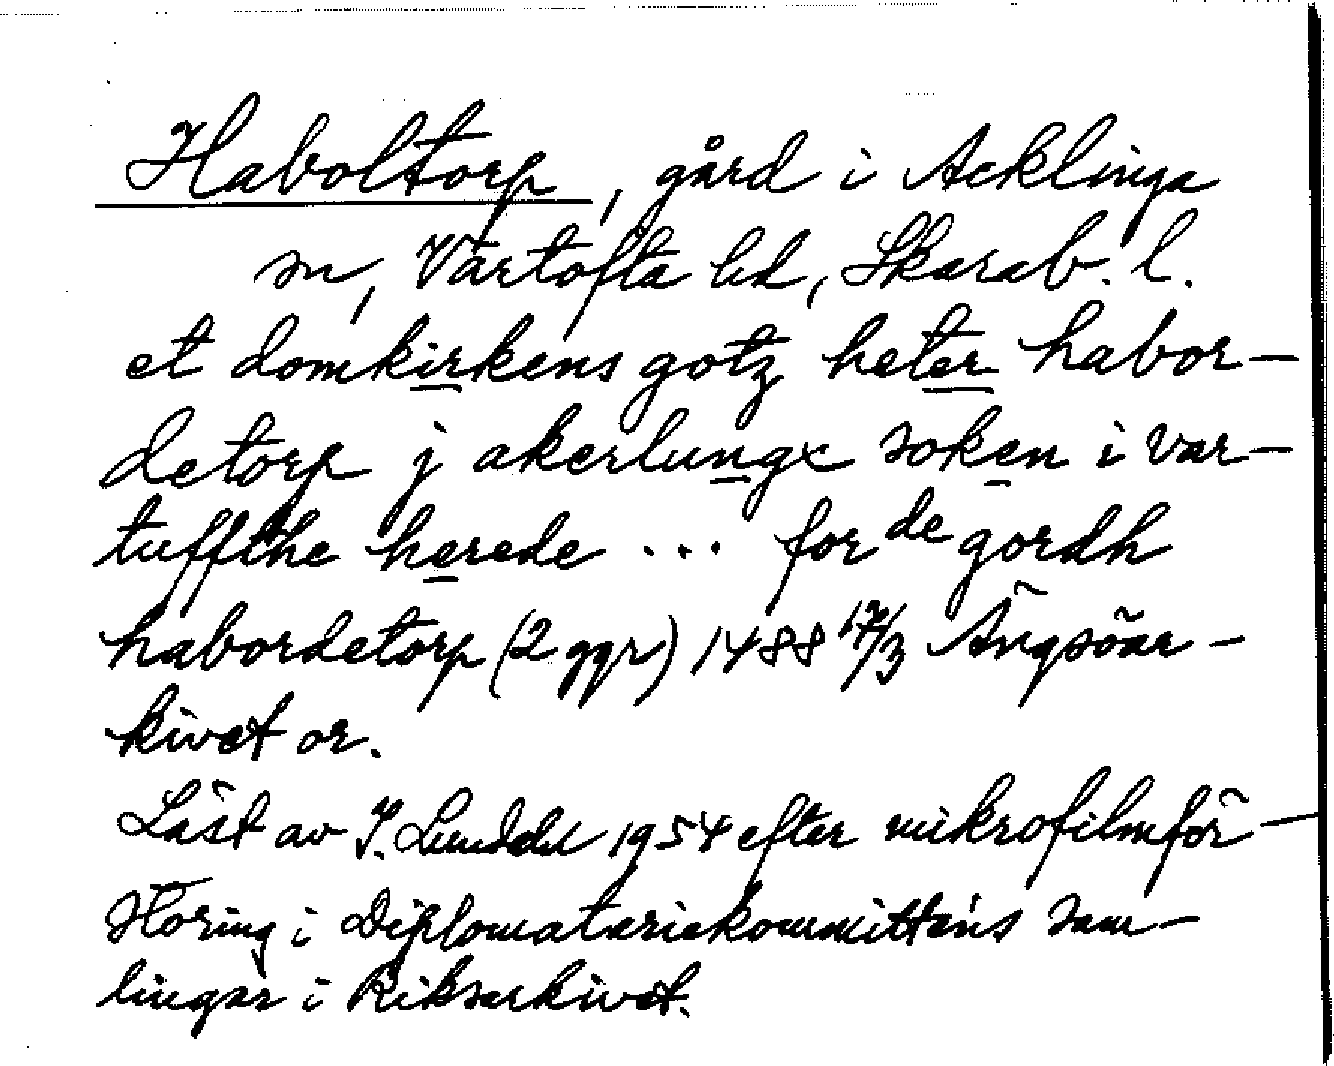 Haboltorp, gård i Acklinga
sn, Vartofta hd, Skarab. l.
et domkirkens gotz heter habor-
detorp j akerlunge soken i var-
tuffthe herede ... for de gordh
habordetorp (2 ggr) 1488 17/3 Ängsöar-
kivet or.
Läst av I. Lundahl 1954 efter mikrofilmför-
storing i Diplomatariekommitténs sam-
lingar i Riksarkivet.